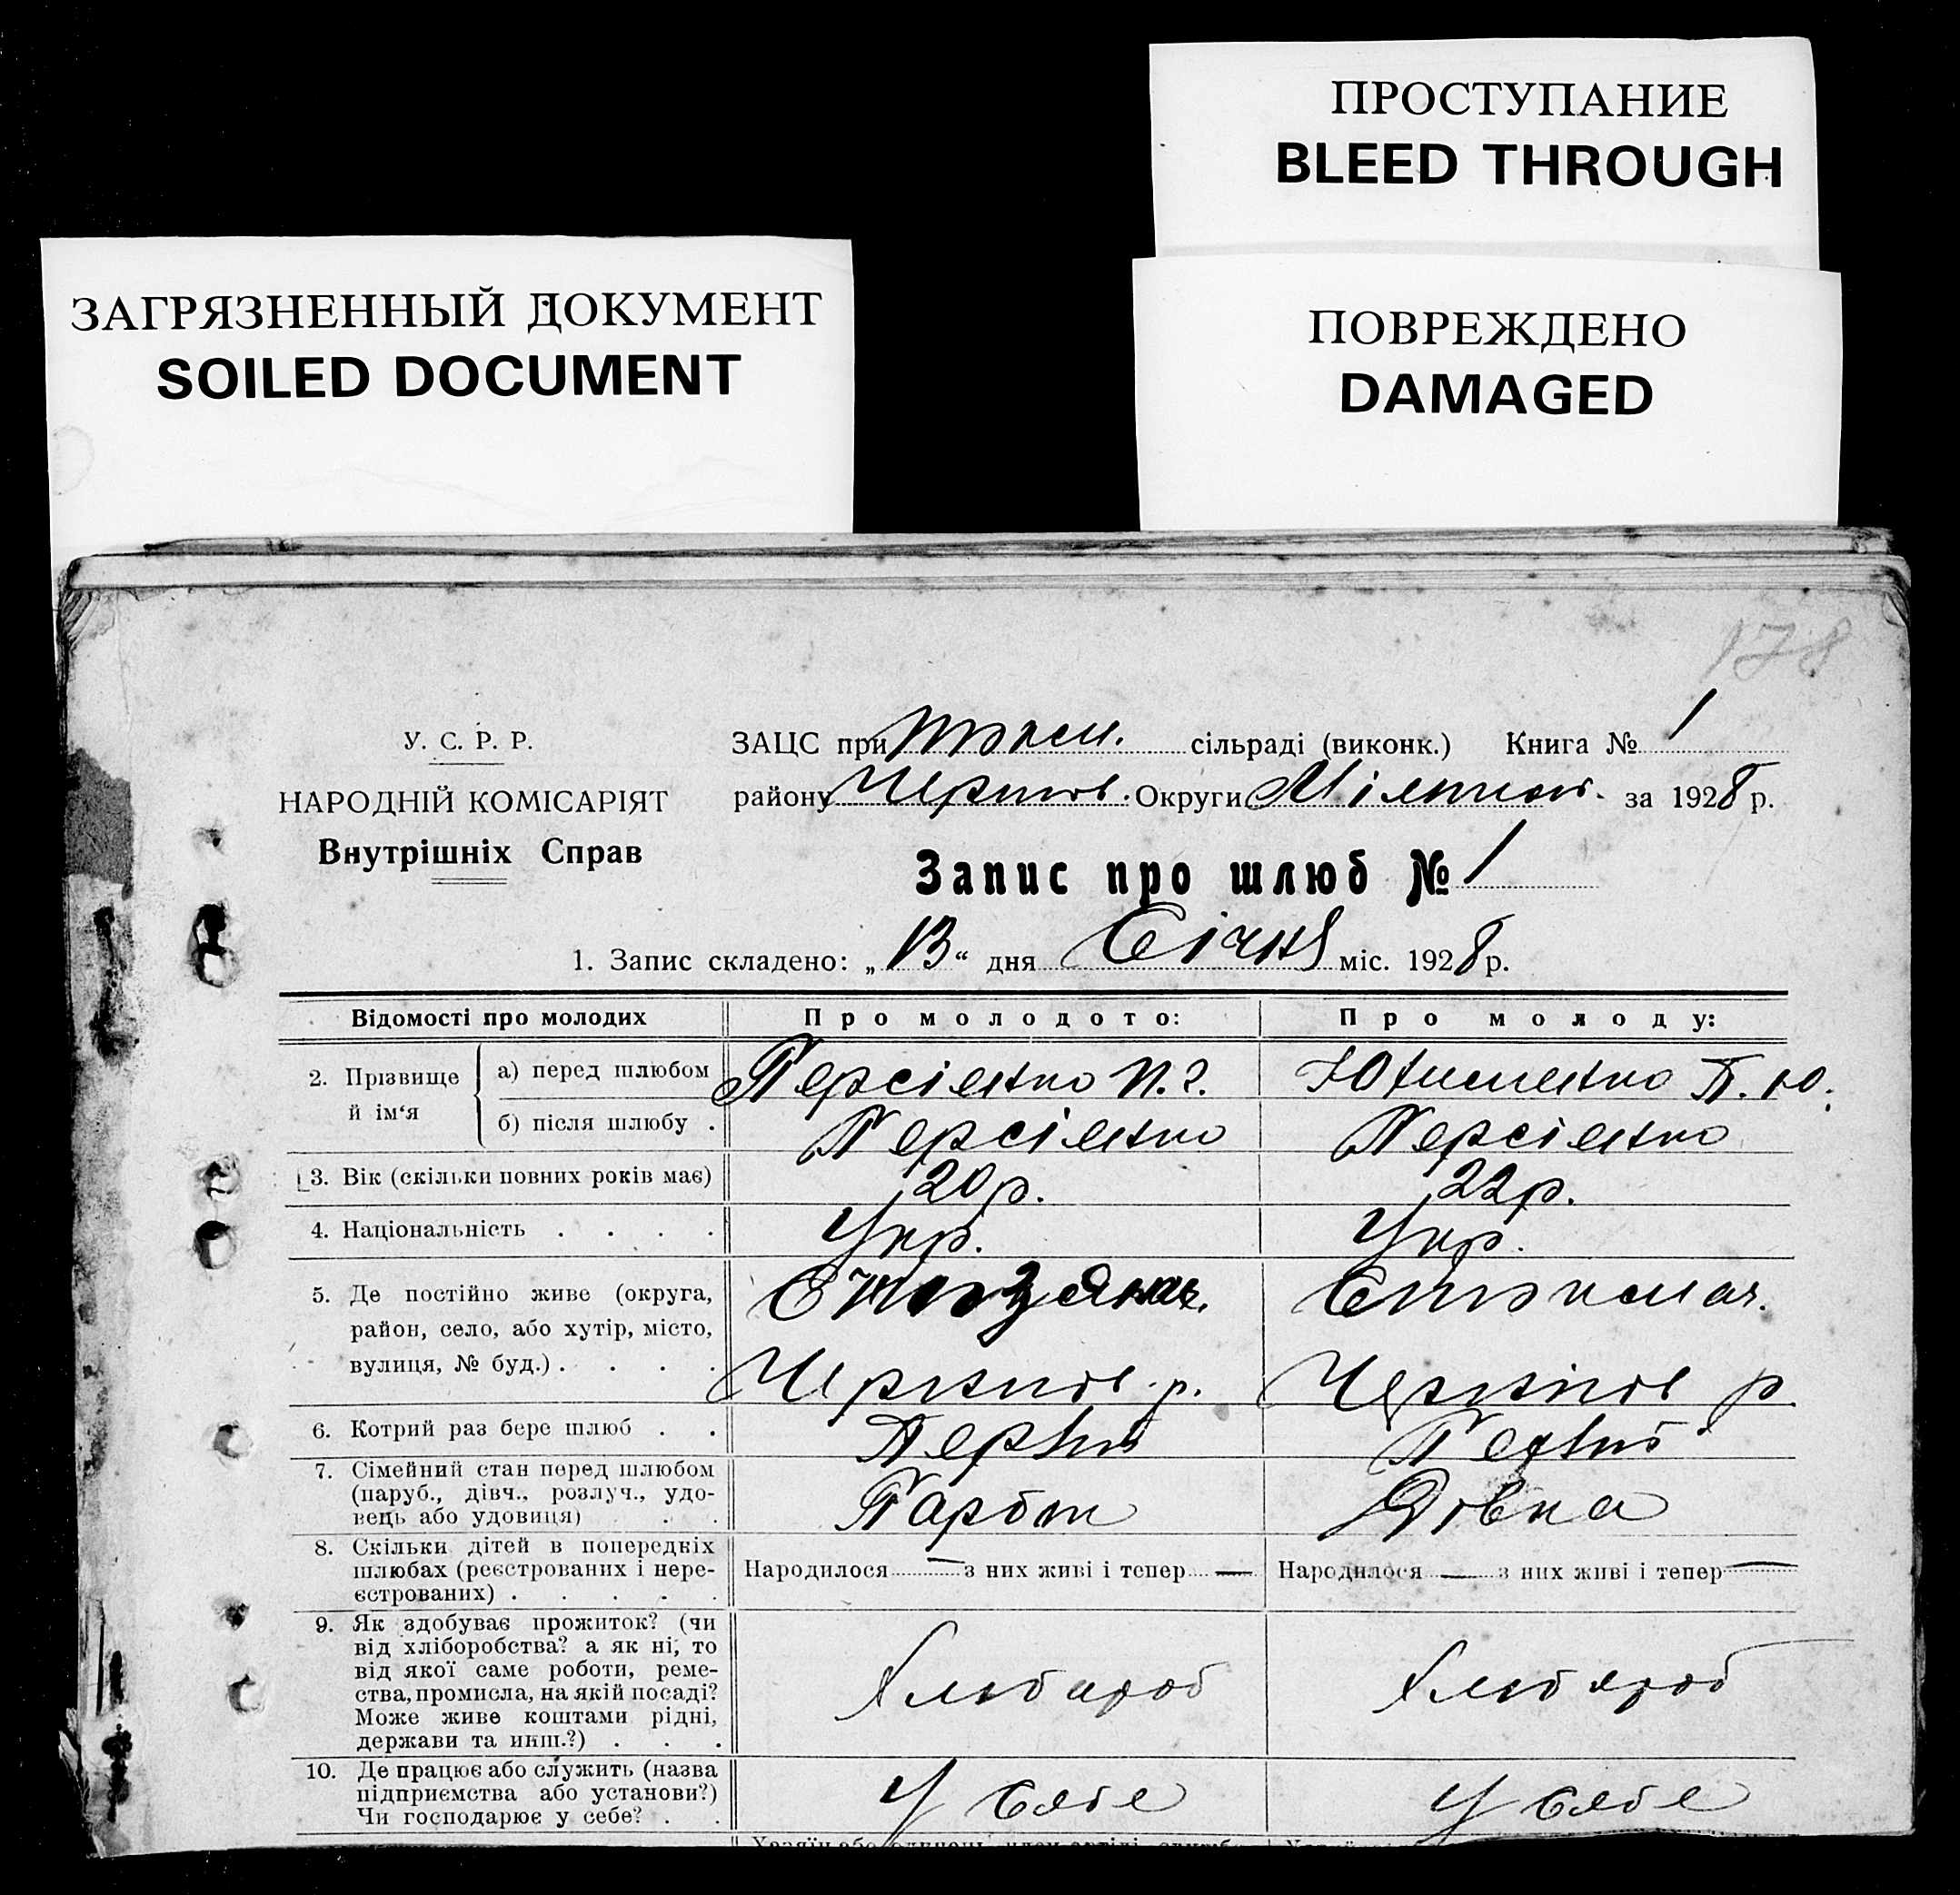 ПРОСТУПАНИЕ
BLEED THROUGH
ЗАГРЯЗНЕННЫЙ ДОКУМЕНТ
SOILED DOCUMENT
ПОВРЕЖДЕНО
DAMAGED
178
У. С. Р. Р.
НАРОДНІЙ КОМІСАРІЯТ
Внутрішніх Справ
ЗАЦС при сільраді (виконк.) Книга № 1
району Округи за 1928 р.
Запис про шлюб № 1
1. Запис складено: „13“ дня Січня міс. 1928 р.
Відомості про молодих
Про молодого:
Про молоду:
2. Прізвище й ім‘я
а) перед шлюбом
Персіенко П. Г.
б) після шлюбу .
Персіенко
Персіенко
3. Вік (скільки повних років має)
20 р.
22 р.
4. Національність . . . .
Укр.
Укр.
5. Де постійно живе (округа,
район, село, або хутір, місто,
вулиця, № буд.) . . . .
6. Котрий раз бере шлюб . .
7. Сімейний стан перед шлюбом
(паруб., дівч., розлуч., удо-
вець або удовиця) . .
Парбок
Дівка
8. Скільки дітей в попередніх
шлюбах (реєстрованих і нере-
єстрованих) . . . . .
Народилося — з них живі і тепер —
Народилося — з них живі і тепер —
9. Як здобуває прожиток? (чи
від хліборобства? а як ні, то
від якої саме роботи, реме-
ства, промисла, на якій посаді?
Може живе коштами рідні,
держави та инш.?) . . .
Хлібороб
Хлібороб
10. Де працює або служить (назва
підприємства або установи?)
Чи господарює у себе? . .
У себе
У себе